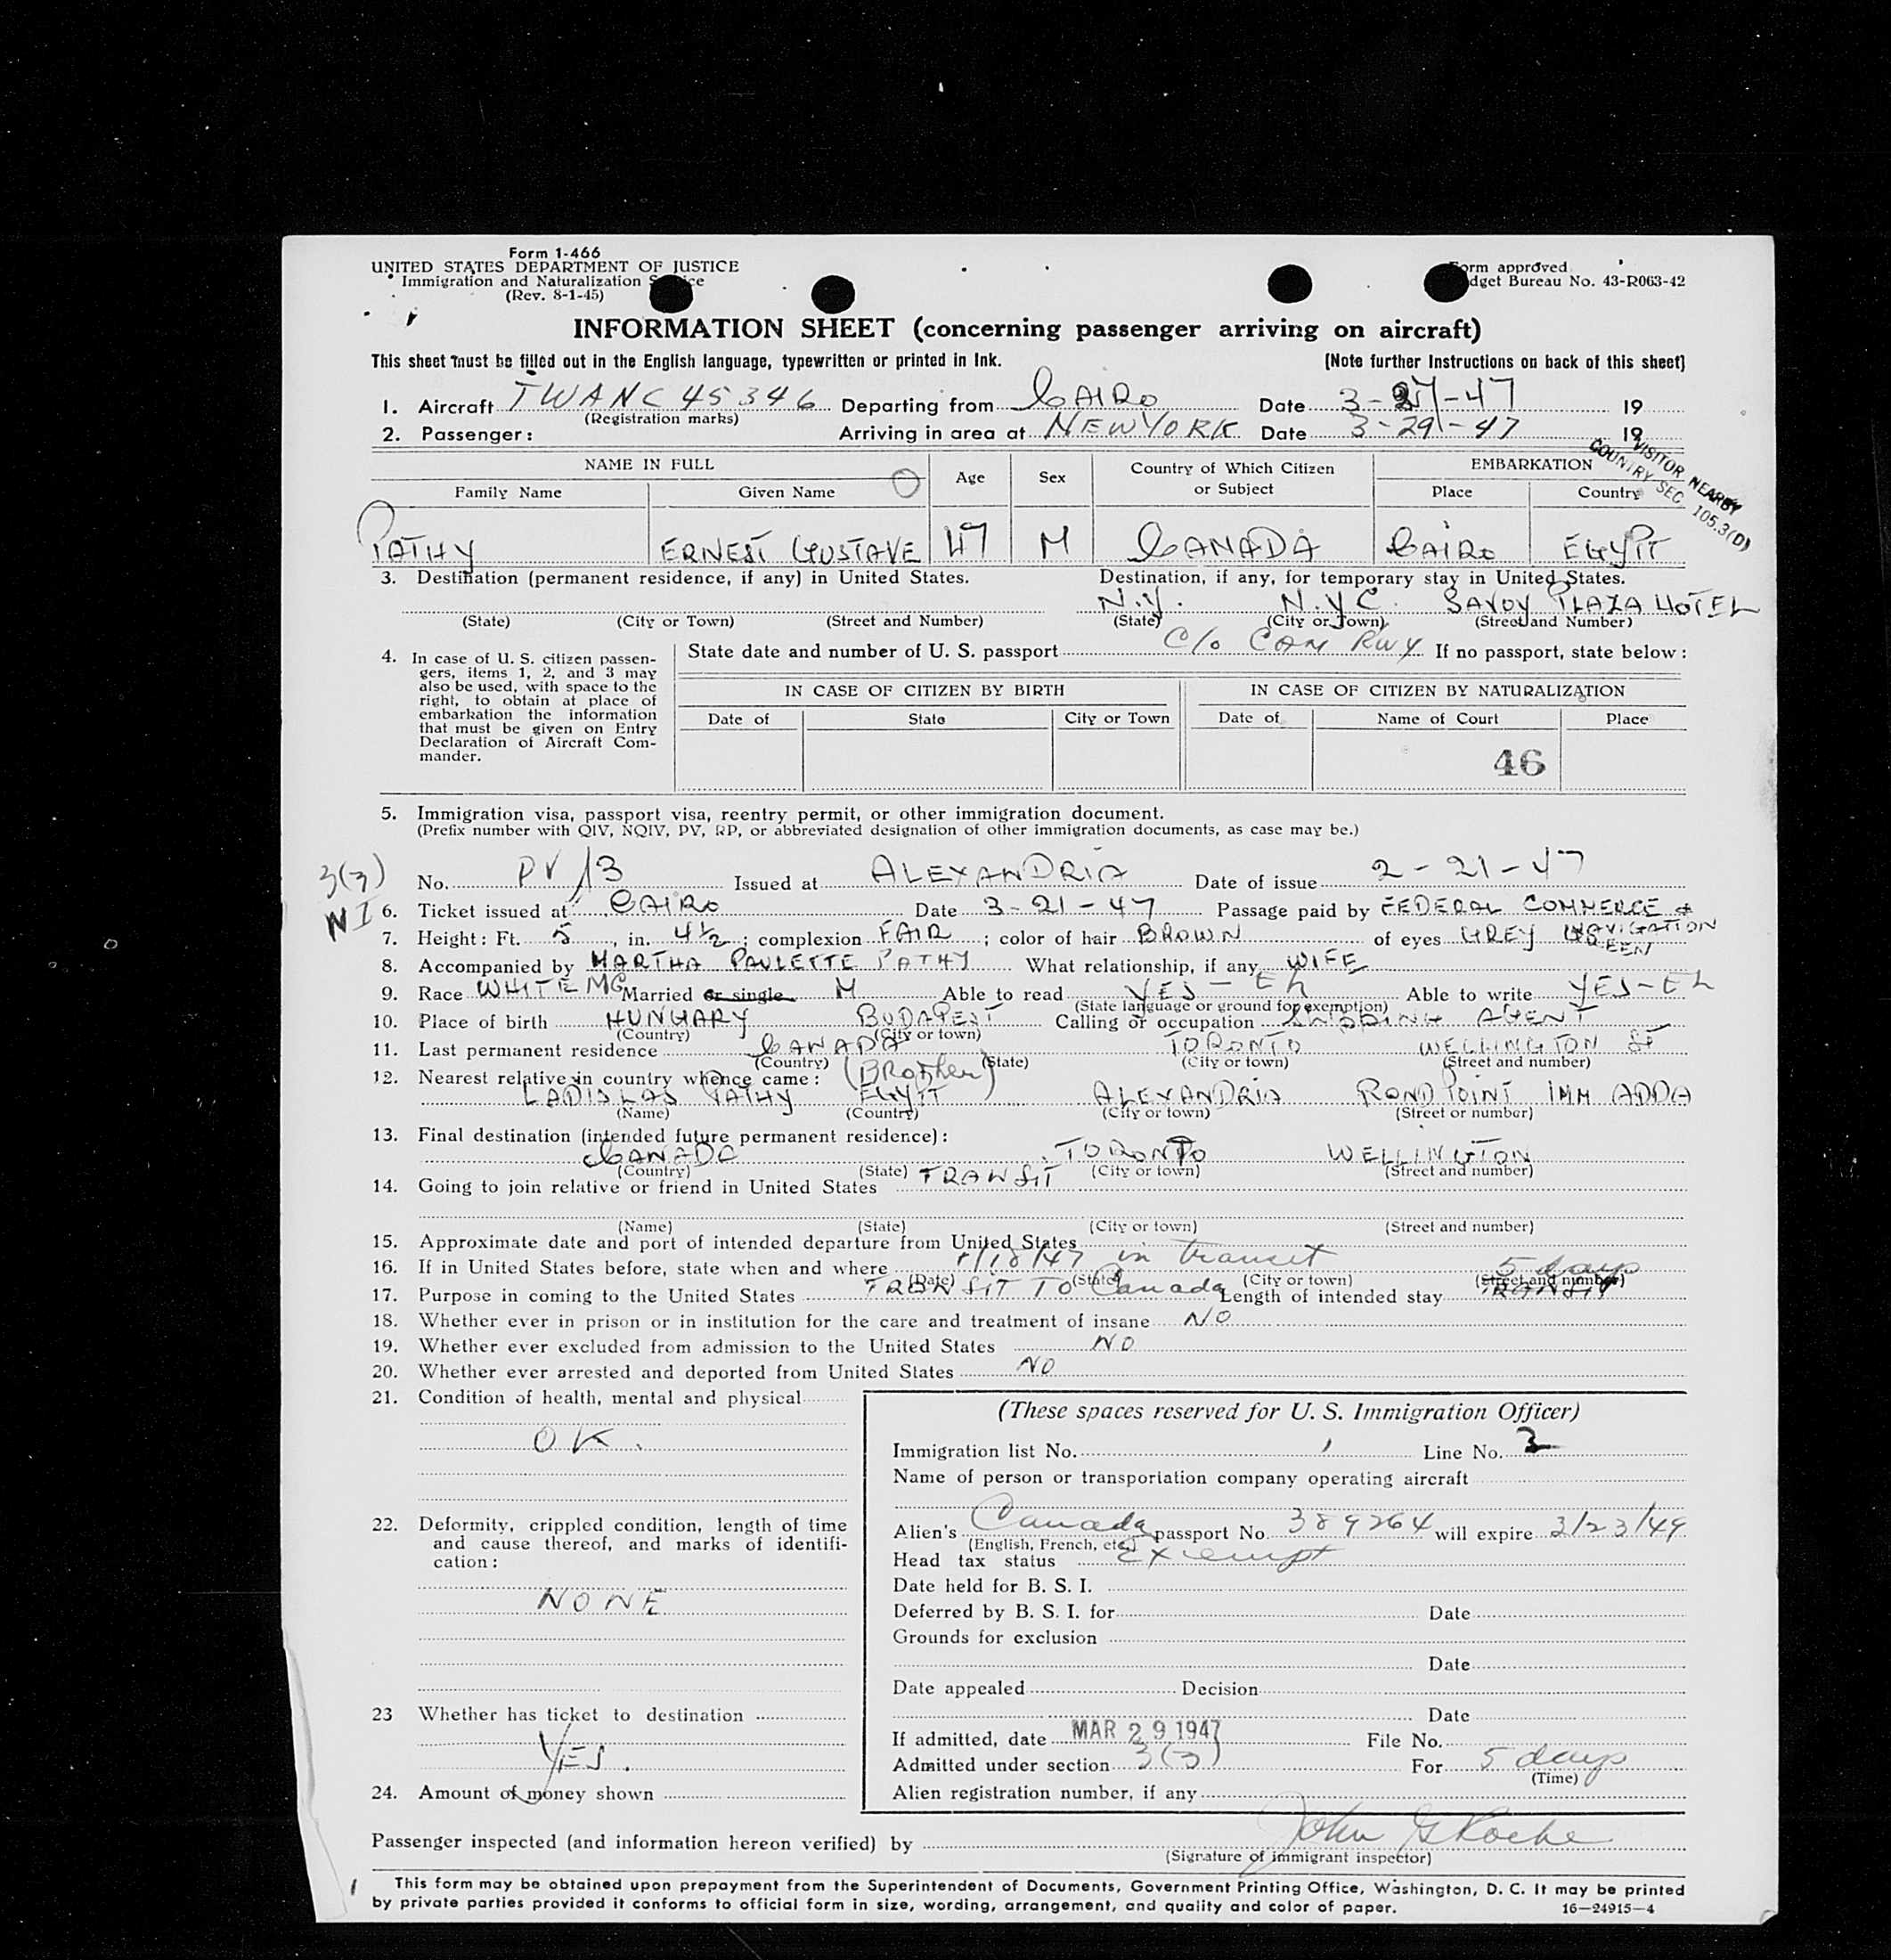 Form 1-466
UNITED STATES DEPARTMENT OF JUSTICE
Immigration and Naturalization S ce
(Rev. 8-1-45)
Form approved
dget Bureau No. 43-R063-42
INFORMATION SHEET (concerning passenger arriving on aircraft)
This sheet must be filled out in the English language, typewritten or printed in Ink. (Note further Instructions on back of this sheet)
1. Aircraft TWA NC 45346 Departing from CAIRO Date 3-27-47 19
(Registration marks)
2. Passenger: Arriving in area at NEW YORK Date 3-29-47 19
VISITOR NEARBY
COUNTRY SEC. 105.3(D)
NAME IN FULL Age Sex Country of Which Citizen or Subject EMBARKATION
Family Name Given Name Place Country
PATHY ERNEST GUSTAVE 47 M CANADA CAIRO EGYPT
3. Destination (permanent residence, if any) in United States. Destination, if any, for temporary stay in United States.
N.Y. N.Y.C. SAVOY PLAZA HOTEL
(State) (City or Town) (Street and Number) (State) (City or Town) (Street and Number)
4. In case of U. S. citizen passengers, items 1, 2, and 3 may also be used, with space to the right, to obtain at place of embarkation the information that must be given on Entry Declaration of Aircraft Commander.
State date and number of U. S. passport C/o CAN RWY If no passport, state below:
IN CASE OF CITIZEN BY BIRTH IN CASE OF CITIZEN BY NATURALIZATION
Date of State City or Town Date of Name of Court Place
46
5. Immigration visa, passport visa, reentry permit, or other immigration document.
(Prefix number with QIV, NQIV, PV, RP, or abbreviated designation of other immigration documents, as case may be.)
3(3)
NI
No. PV/3 Issued at ALEXANDRIA Date of issue 2-21-47
6. Ticket issued at CAIRO Date 3-21-47 Passage paid by FEDERAL COMMERCE & NAVIGATION
7. Height: Ft. 5, in. 4½; complexion FAIR; color of hair BROWN of eyes GREY GREEN
8. Accompanied by MARTHA PAULETTE PATHY What relationship, if any WIFE
9. Race WHITE MG Married or single M Able to read YES - EG Able to write YES-EG
(State language or ground for exemption)
10. Place of birth HUNGARY BUDAPEST Calling or occupation SHIPPING AGENT
(Country) (City or town)
11. Last permanent residence CANADA TORONTO WELLINGTON ST
(Country) (State) (City or town) (Street and number)
12. Nearest relative in country whence came: (Brother)
LADISLAS PATHY EGYPT ALEXANDRIA ROND POINT IMM ADDA
(Name) (Country) (City or town) (Street or number)
13. Final destination (intended future permanent residence):
CANADA TORONTO WELLINGTON
(Country) (State) (City or town) (Street and number)
14. Going to join relative or friend in United States TRANSIT
(Name) (State) (City or town) (Street and number)
15. Approximate date and port of intended departure from United States
16. If in United States before, state when and where 1/18/47 in transit
(Date) (State) (City or town) (Street and number)
17. Purpose in coming to the United States TRANSIT TO Canada Length of intended stay TRANSIT 5 days
18. Whether ever in prison or in institution for the care and treatment of insane NO
19. Whether ever excluded from admission to the United States NO
20. Whether ever arrested and deported from United States NO
21. Condition of health, mental and physical
OK.
22. Deformity, crippled condition, length of time and cause thereof, and marks of identification:
NONE
23 Whether has ticket to destination
YES.
24. Amount of money shown
(These spaces reserved for U. S. Immigration Officer)
Immigration list No. Line No. 3
Name of person or transportation company operating aircraft
Alien's Canada passport No. 389264 will expire 3/23/49
(English, French, etc.)
Head tax status Exempt
Date held for B. S. I.
Deferred by B. S. I. for Date
Grounds for exclusion
Date
Date appealed Decision
Date
If admitted, date MAR 29 1947 File No.
Admitted under section 3(3) For 5 days
(Time)
Alien registration number, if any
Passenger inspected (and information hereon verified) by John G Roche
(Signature of immigrant inspector)
This form may be obtained upon prepayment from the Superintendent of Documents, Government Printing Office, Washington, D. C. It may be printed
by private parties provided it conforms to official form in size, wording, arrangement, and quality and color of paper. 16—24915-4